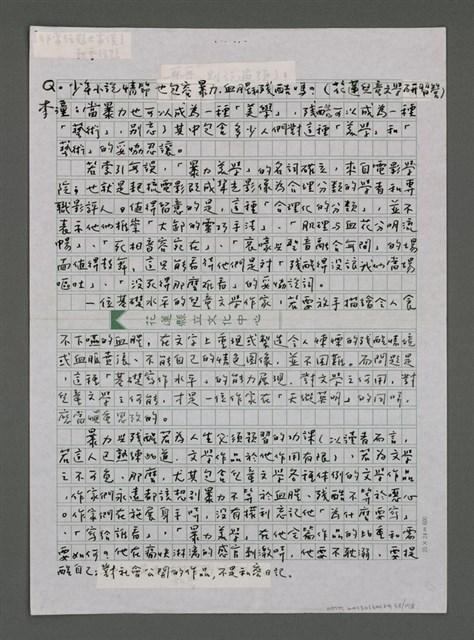 Q。少年小說情節也包容暴力、血腥和殘酷嗎？（花蓮兒童文學研習營）
李潼：當暴力也可以成為一種「美學」，殘酷可以成為一種
「藝術」，別忘了其中包含多少人們對這種「美學」和「
藝術」的妥協忍讓。
若索引無誤，「暴力美學」的名詞確立，來自電影學
院；也就是把從電影改成聲光影像為合理分類的學者和專
職影評人。值得留意的是，這種「合理化的分類」，並不
表示他們推崇「大卸的靈巧手法」、「肌理與血花分明流
暢」、「死相看容宛在」、「哀嚎與聲音融合無間」的場
面值得鼓舞，這只能看得他們是對「殘酷得沒讓我們當場
嘔吐」、「沒死得那麼難看」的妥協說詞。
一位基礎水平的兒童文學作家，若要放手描繪令人食
花蓮縣立文化中心
不下嚥的血腥，在文字上重現或製造令人悽悽的殘酷情境
或血脈賁張、不能自已的情色圖像，並不困難。而問題是
，這種「基礎寫作水平」的能力展現，對文學之何用，對
兒童文學之何能，才是一位作家在「天縱英明」的同時，
應當嚴肅思考的。
暴力與殘酷若為人生必須預習的功課（以讀者而言，
若這人已熟練此道，文學作品於他作用有限），若為文學
之不可免，那麼，尤其包含兒童文學各種體例的文學作品
，作家們永遠都該想到暴力不等於血腥、殘酷不等於噁心
。作家們在施展身手時，沒有權利忘記他「為什麼要寫」
、「寫給誰看」，「暴力美學」在他全篇作品的比重和需
要如何。他在痛快淋漓的感官刺激時，他要不耽溺，要提
醒自己：對社會公開的作品，不是私密日記。
25×24=600